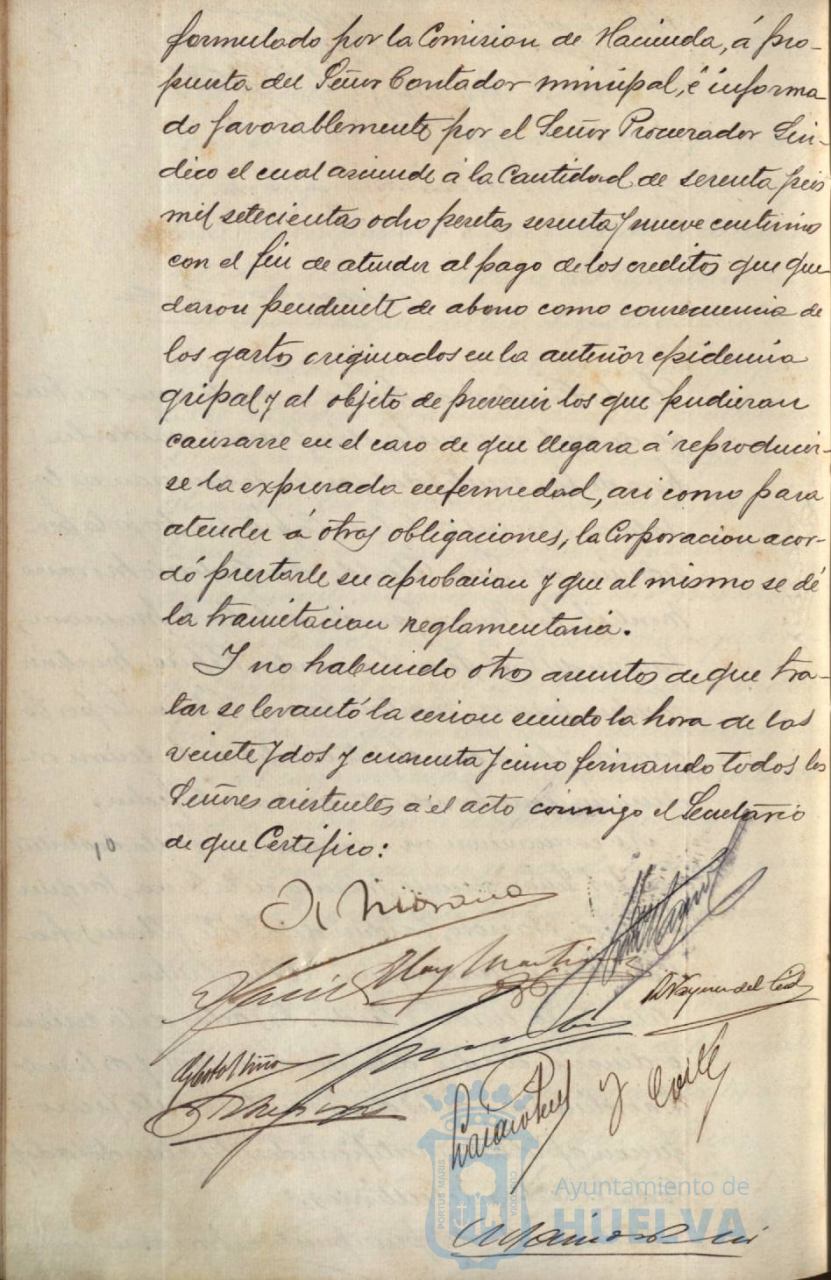 formulado por la Comision de Hacienda, á pro-
puesta del Señor Contador minicipal, é informa
do favorablemente por el Señor Procurador Sin-
dico el cual asciende á la Cantidad de sesenta seis
mil setecientas ocho pesetas sesenta y nueve centimos
con el fin de atender al pago de los creditos que que
daron pendiente de abono como consecuencia de
los gastos originados en la anterior epidemia
gripal y al objeto de prevenir los que pudieran
causarse en el caso de que llegara á reproducir-
se la expresada enfermedad, asi como para
atender á otras obligaciones, la Corporacion acor-
dó prestarle su aprobacion y que al mismo se dé
la tramitacion reglamentaria.
Y no habiendo otros asuntos de que tra-
tar se levantó la sesion siendo la hora de las
veinte y dos y cuarenta y cinco firmando todos los
Señores asistentes á el acto conmigo el Secretario
de que Certifico:
Eloy Martin
Vazquez del Cid
y
PORTUS MARIS
CUSTODIA
Ayuntamiento de
HUELVA